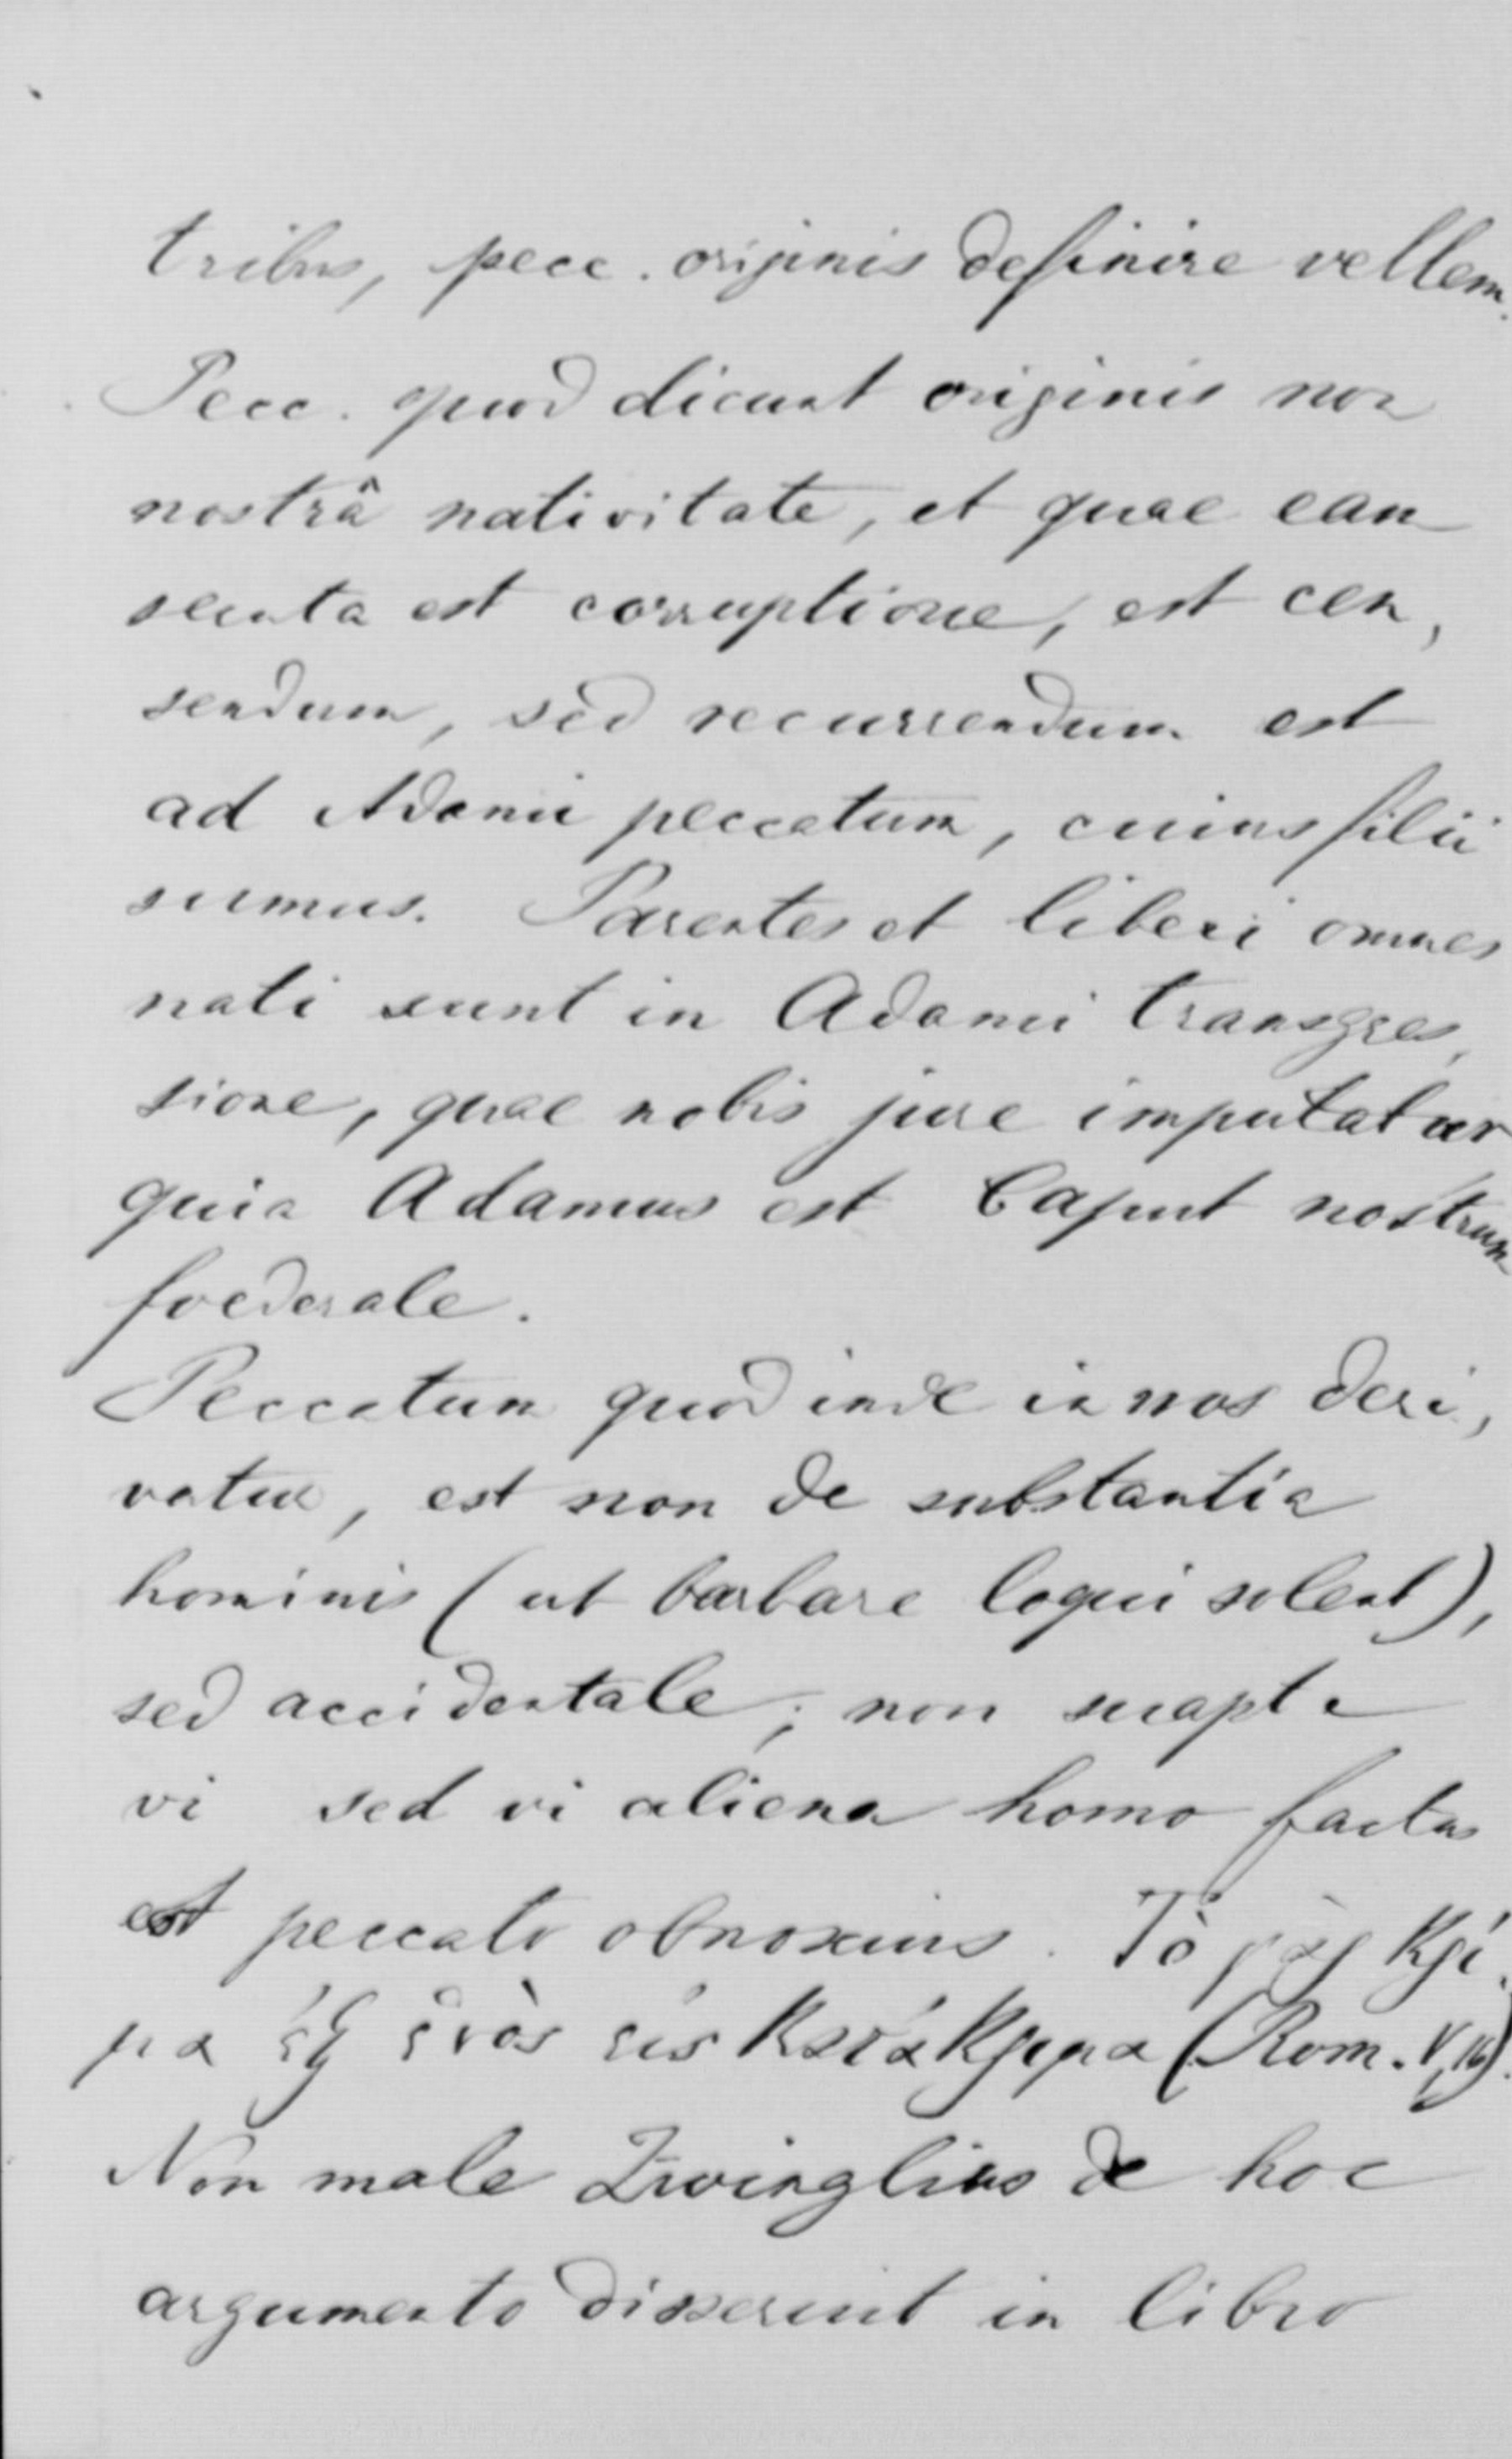 tribus, pecc. originis definire vellem.
Pecc. quod dicunt originis non
nostrâ nativitate, et quae eam
secuta est corruptione, est cen,
sendum, sed recurrendum est
ad Adami peccatum, cuius filii
sumus. Parentes et liberi omnes
nati sunt in Adami transgres,
sione, quae nobis jure imputatur
quia Adamus est Caput nostrum
foederale.
Peccatum quod inde in nos deri,
vatur, est non de substantia
hominis (ut barbare loqui solent),
sed accidentale; non suapte
vi sed vi aliena homo factus
est peccato obnoxius. Τὸ γὰρ κρί,
μα ἐξ ἑνὸς εἰς κατάκριμα (Rom. V, 16).
Non male Zwinglius de hoc
argumento disseruit in libro